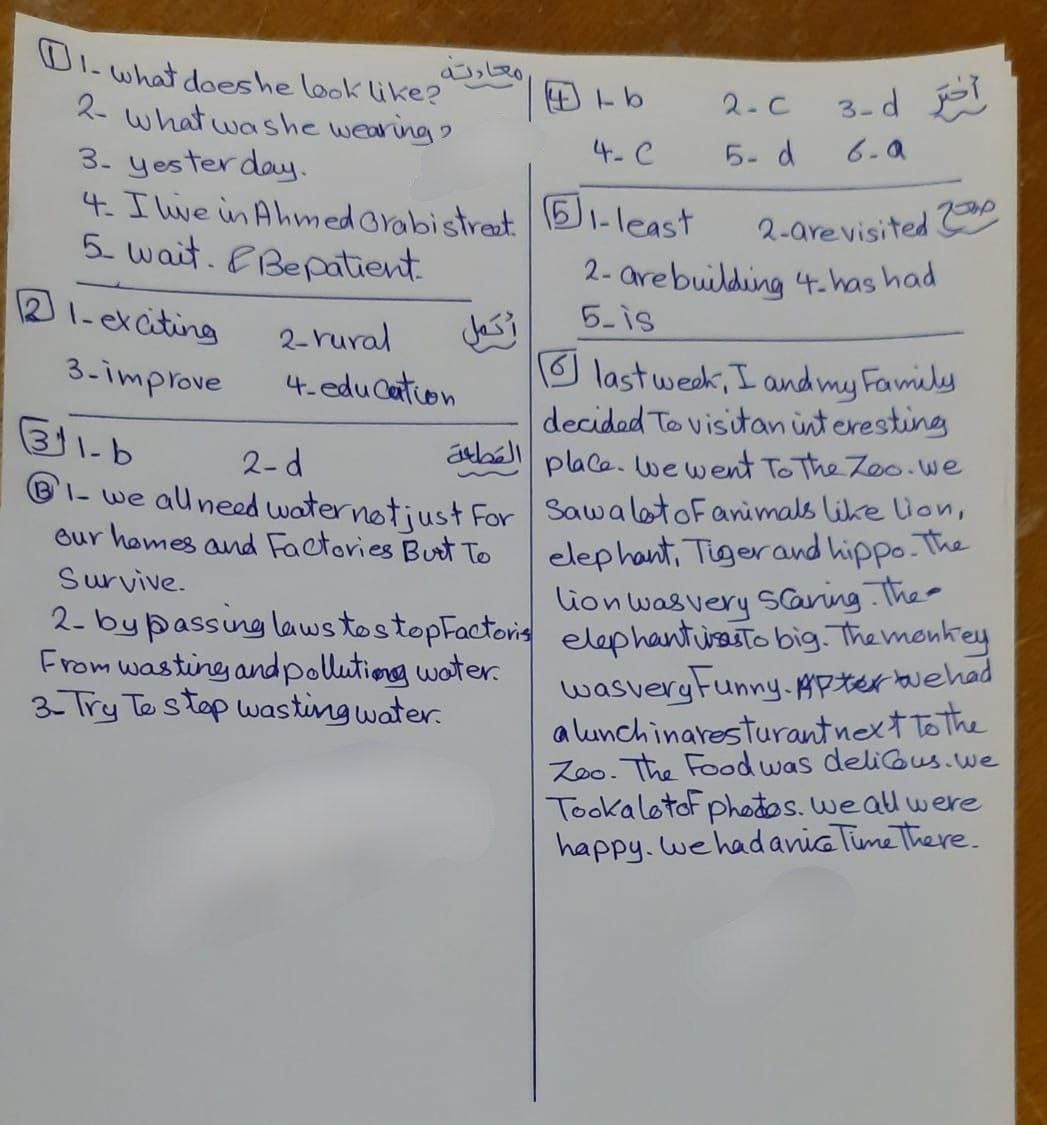 [1] 1- what does he look like? محادثة
2- what was he wearing?
3- yesterday.
4- I live in Ahmed Orabi street.
5- wait. & Be patient.
[2] 1- exciting 2- rural أكمل
3- improve 4- education
[3] 1- b 2- d القطعة
(B) 1- we all need water not just For
our homes and Factories But To
Survive.
2- by passing laws to stop Factoris
From wasting and polluting water.
3- Try To stop wasting water.
[4] 1- b 2- c 3- d أختر
4- C 5- d 6- a
[5] 1- least 2- are visited صحح
2- are building 4- has had
5- is
[6] last week, I and my Family
decided To visit an interesting
place. We went To The Zoo. we
Saw a lot of animals like lion,
elephant, Tiger and hippo. The
lion was very scaring. The
elephant was To big. The monkey
was very Funny. After we had
a lunch in a resturant next To the
Zoo. The Food was delicous. we
Took a lot of photos. we all were
happy. we had a nice Time There.